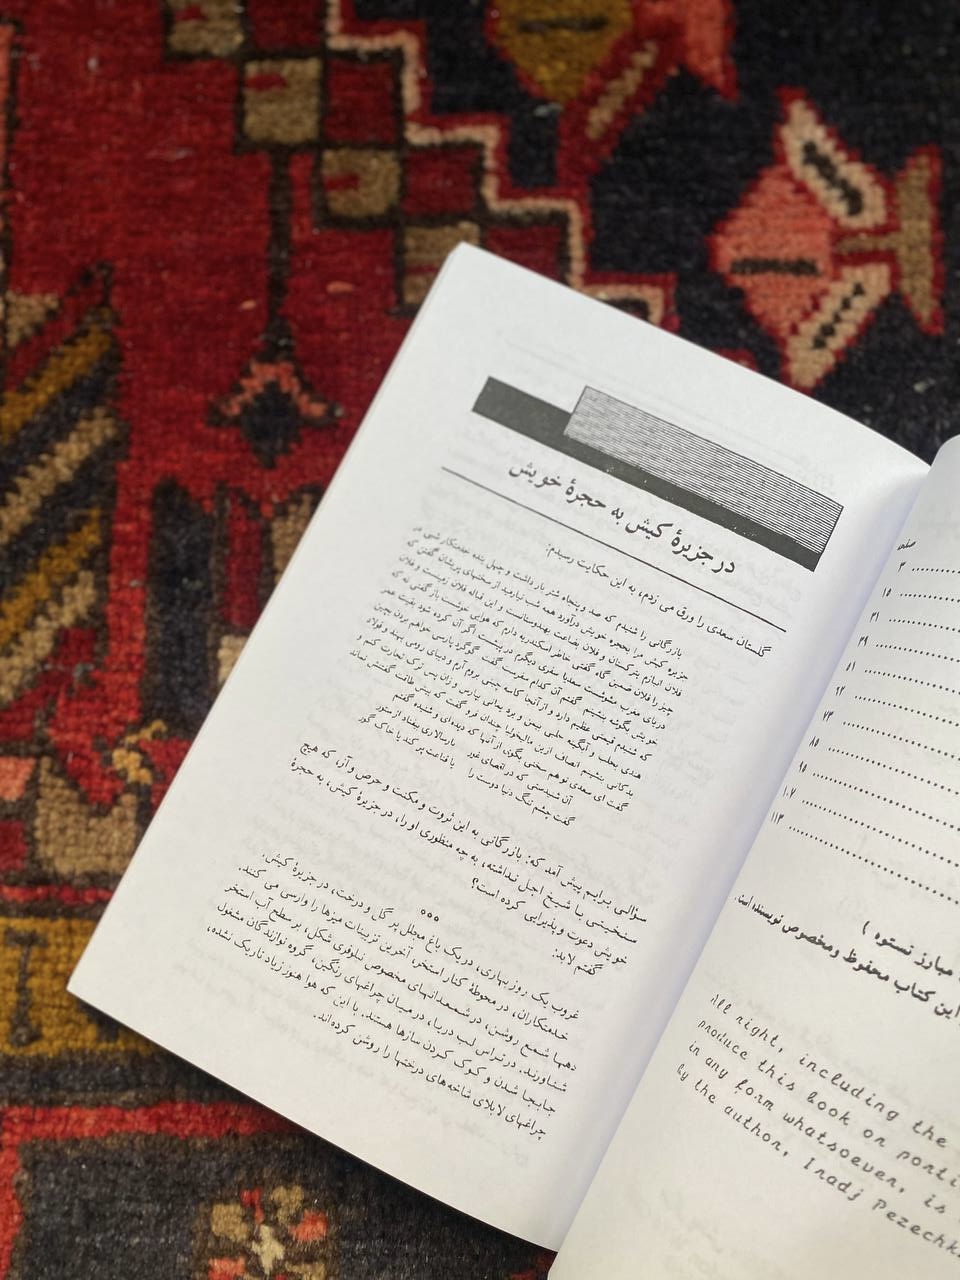 در جزیرهٔ کیش به حجرهٔ خویش
گلستان سعدی را ورق می زدم، به این حکایت رسیدم:
بازرگانی را شنیدم که صد و پنجاه شتر بار داشت و چهل بنده خدمتکار شبی در
جزیره کیش مرا بحجره خویش درآورد همه شب نیارمید از سخنهای پریشان گفتن که
فلان انبازم بترکستان و فلان بضاعت بهندوستانست و این قباله فلان زمیست و فلان
چیز را فلان ضمین گاه گفتی خاطر اسکندریه دارم که هوایی خوشست باز گفتی نه که
دریای مغرب مشوشست سعدیا سفری دیگرم در پیست اگر آن کرده شود بقیت عمر
خویش بگوشه بنشینم گفتم آن کدام سفرست گفت گوگرد پارسی خواهم بردن بچین
که شنیدم قیمتی عظیم دارد و از آنجا کاسه چینی بروم آرم و دیبای رومی بهند و فولاد
هندی بحلب و آبگینه حلبی بیمن و برد یمانی بپارس و زان پس ترک تجارت کنم و
بدکانی بنشینم انصاف ازین مالیخولیا چندان فرو گفت که بیش طاقت گفتنش نماند
گفت ای سعدی تو هم سخنی بگوی از آنها که دیده‌ای و شنیده گفتم
آن شنیدستی که در اقصای غور بارسالاری بیفتاد از ستور
گفت چشم تنگ دنیا دوست را یا قناعت پر کند یا خاک گور
سؤالی برایم پیش آمد که: بازرگانی به این ثروت و مکنت و حرص و آز، که هیچ
سنخیتی با شیخ اجل نداشته، به چه منظوری او را، در جزیرهٔ کیش، به حجرهٔ
خویش دعوت و پذیرایی کرده است؟
گفتم لابد:
°°°
غروب یک روز بهاری، در یک باغ مجلل پر گل و درخت، در جزیرهٔ کیش.
خدمتکاران، در محوطهٔ کنار استخر، آخرین تزیینات میزها را وارسی می کنند.
دهها شمع روشن، در شمعدانهای مخصوص نیلوفری شکل، بر سطح آب استخر
شناورند. در تراس لب دریا، در میان چراغهای رنگین، گروه نوازندگان مشغول
جابجا شدن و کوک کردن سازها هستند. با این که هوا هنوز زیاد تاریک نشده،
چراغهای لابلای شاخه‌های درختها را روشن کرده‌اند.
صفحه
۳
۱۵
۳۱
۳۹
۵۱
۶۳
۷۳
۸۵
۹۵
۱۰۷
۱۱۳
مبارز نستوه )
این کتاب محفوظ ومخصوص نویسنده است.
All right, including the
produce this book or porti
in any form whatsoever, is
by the author, Iradj Pezechk